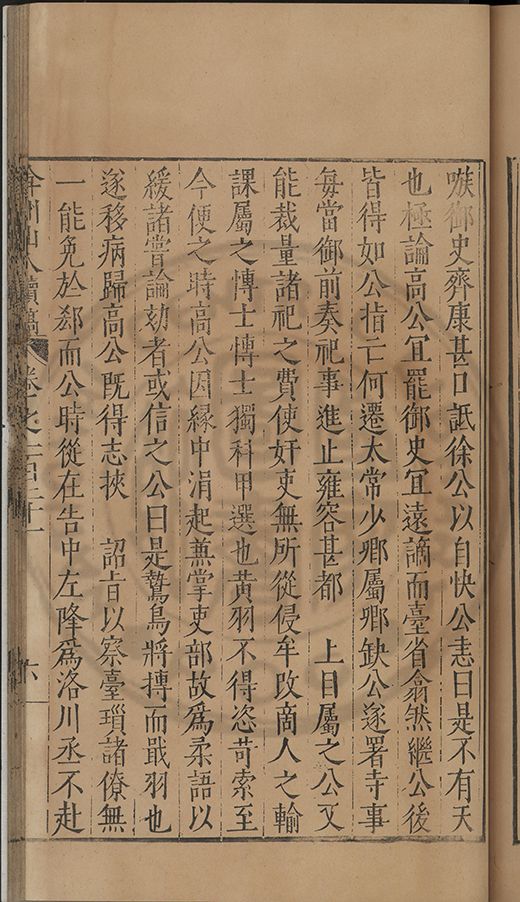 嗾御史齊康甚口詆徐公以自快公恚曰是不有天
也極論高公冝罷御史冝遠謫而臺省翕然繼公後
皆得如公指亡何遷太常少卿屬卿缺公遂署寺事
每當御前奏祀事進止雍容甚都 上目屬之公又
能裁量諸祀之費使奸吏無所從侵牟改商人之輸
課屬之博士博士獨科甲選也黄羽不得恣苛索至
今便之時高公因緣中涓起兼掌吏部故爲柔語以
緩諸嘗論劾者或信之公曰是鷙鳥將搏而戢羽也
遂移病歸高公既得志挾 詔旨以察臺瑣諸僚無
一能免於郄而公時從在告中左降爲洛川丞不赴
弇州山人續稿 卷之一百三十一 六